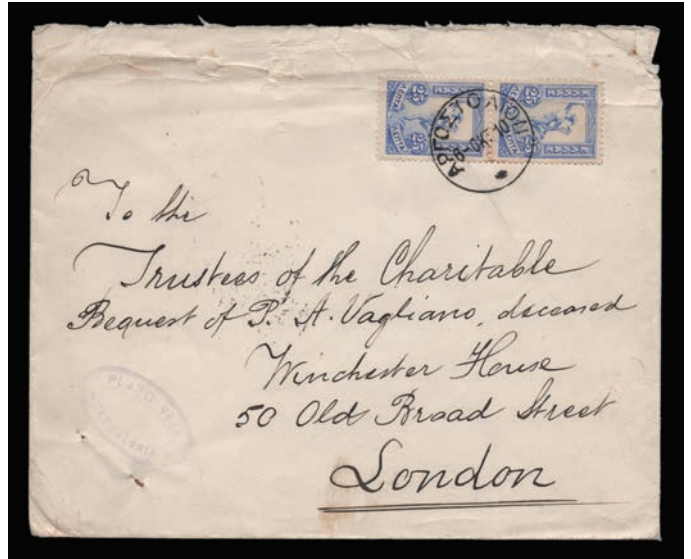 25
ΛΕΠΤΑ
25
25
ΛΕΠΤΑ
25
ΑΡΓΟΣΤΟΛΙΟΝ
6-ΟΚΤ.10
To the
Trustees of the Charitable
Bequest of P. A. Vagliano, deceased
Winchester House
50 Old Broad Street
London
PLATO